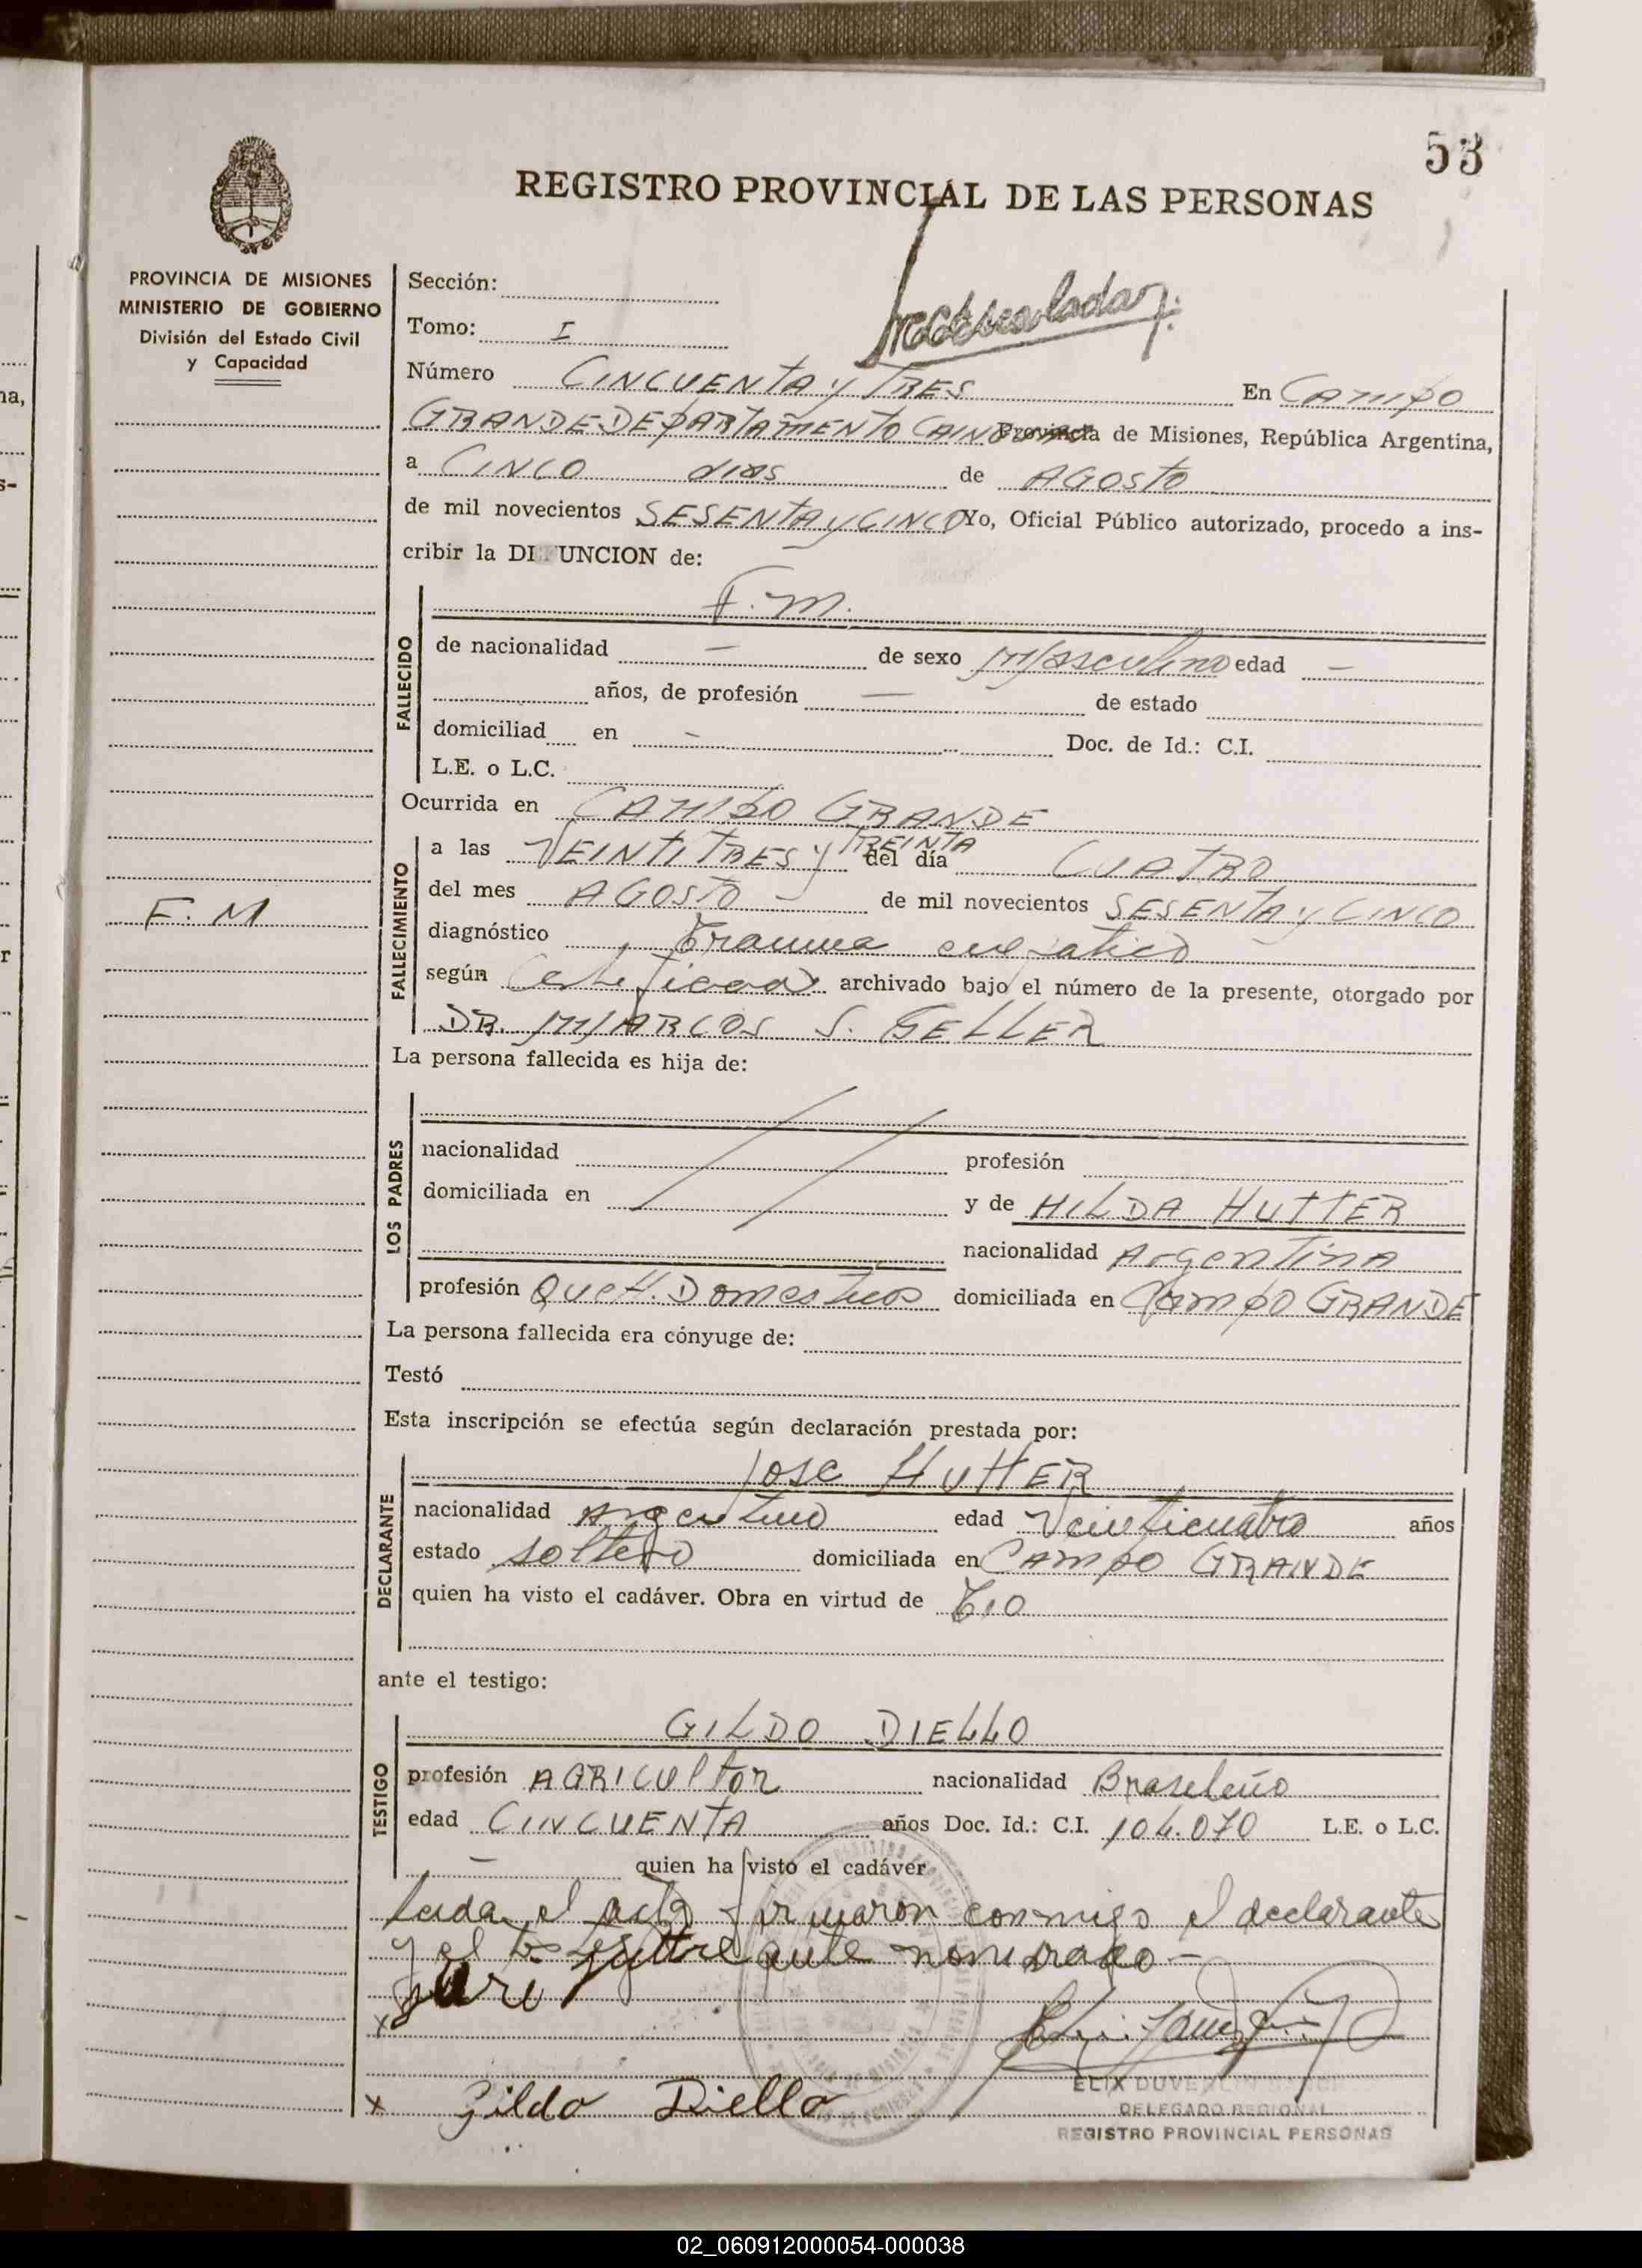 53
REGISTRO PROVINCIAL DE LAS PERSONAS
PROVINCIA DE MISIONES
MINISTERIO DE GOBIERNO
División del Estado Civil
y Capacidad
Sección:
Tomo: I
Número CINCUENTA y TRES En CAMPO
GRANDE DEPARTAMENTO Provincia de Misiones, República Argentina,
a CINCO dias de AGOSTO
de mil novecientos SESENTA y CINCO Yo, Oficial Público autorizado, procedo a ins-
cribir la DEFUNCION de:
F. M.
FALLECIDO
de nacionalidad — de sexo Masculino edad —
años, de profesión — de estado
domiciliad en - Doc. de Id.: C.I.
L.E. o L.C.
Ocurrida en CAMPO GRANDE
FALLECIMIENTO
a las VEINTITRES y TREINTA del día CUATRO
del mes AGOSTO - de mil novecientos SESENTA y CINCO
F. M
diagnóstico Trauma
según Certificado archivado bajo el número de la presente, otorgado por
DR. MARCOS S. GELLER
La persona fallecida es hija de:
LOS PADRES
nacionalidad profesión
domiciliada en y de HILDA HUTTER
nacionalidad Argentina
profesión Queh. Domesticos domiciliada en Campo GRANDE
La persona fallecida era cónyuge de:
Testó
Esta inscripción se efectúa según declaración prestada por:
DECLARANTE
Jose HuttER
nacionalidad Argentino edad Veinticuatro años
estado soltero domiciliada en CAMPO GRANDE
quien ha visto el cadáver. Obra en virtud de Tio
ante el testigo:
TESTIGO
GILDO DIELLO
profesión AGRICULTOR nacionalidad Brasileño
edad CINCUENTA años Doc. Id.: C.I. 104.070 L.E. o L.C.
— quien ha visto el cadáver
Leida el acta firmaron conmigo el declarante
y el ante nombrado -
x
x Gildo Diello
DELEGADO REGIONAL
REGISTRO PROVINCIAL PERSONAS
02_060912000054-000038